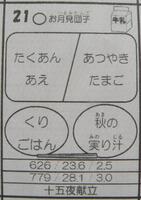 21 ○ お月見団子
牛乳
たくあん
あえ
あつやき
たまご
くり
ごはん
秋の
実り汁
626 / 23.6 / 2.5
779 / 28.1 / 3.0
十五夜献立